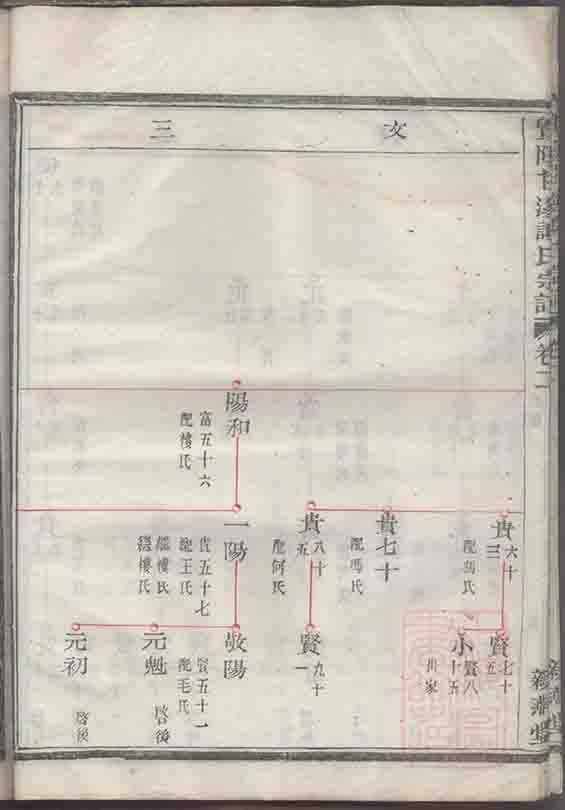 文
三
貴六十三
配馮氏
貴七十
配馮氏
貴八十五
配何氏
陽和
富五十六
配樓氏
一陽
貴五十七
配王氏
繼樓氏
繼樓氏
賢七十五
小賢八十五
出家
賢九十一
敬陽
賢五十一
配毛氏
元魁
啓後
元初
啓後